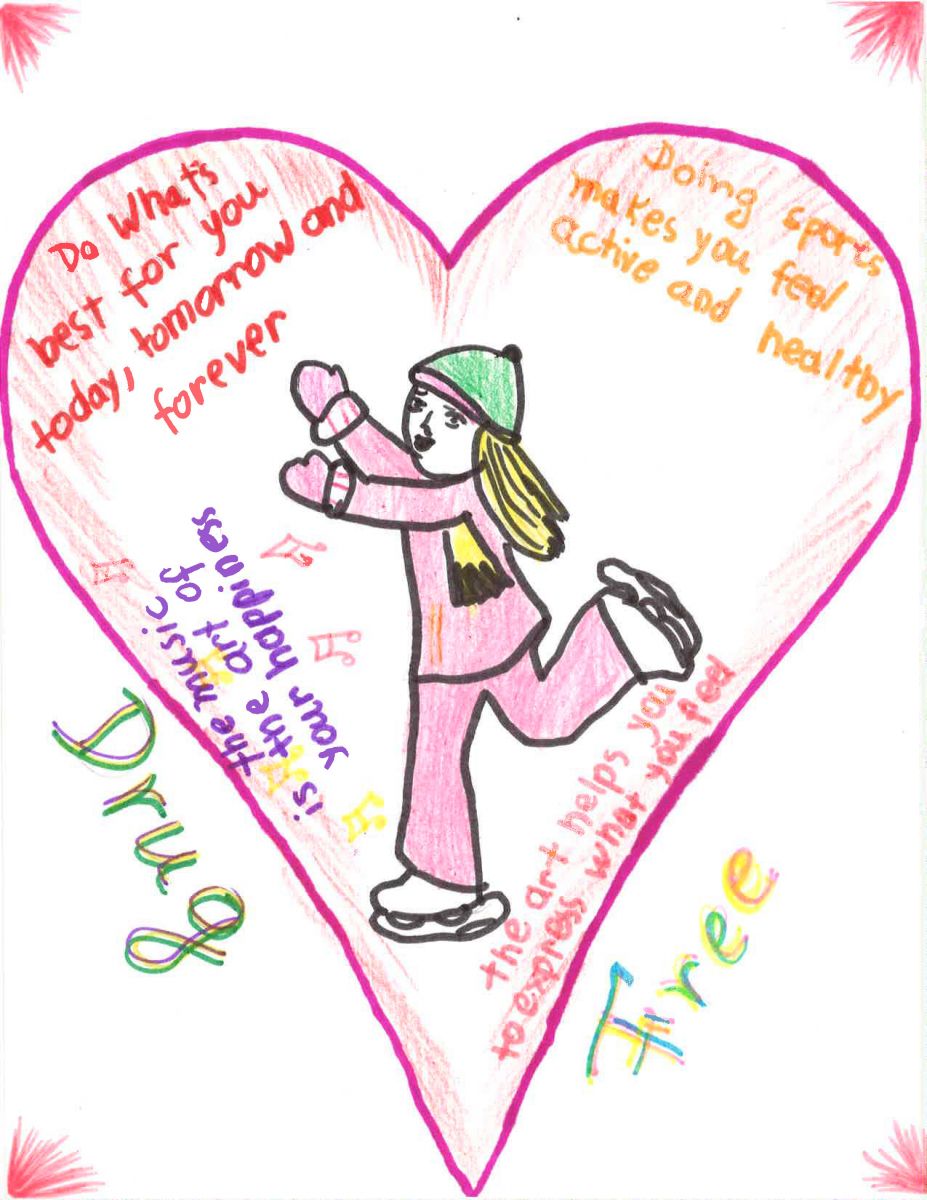 Do What's
best for you
today, tomorrow and
forever
Doing sports
makes you feel
active and healthy
the music
is the art of
your happiness
the art helps you
to express what you feel
Drug
Free